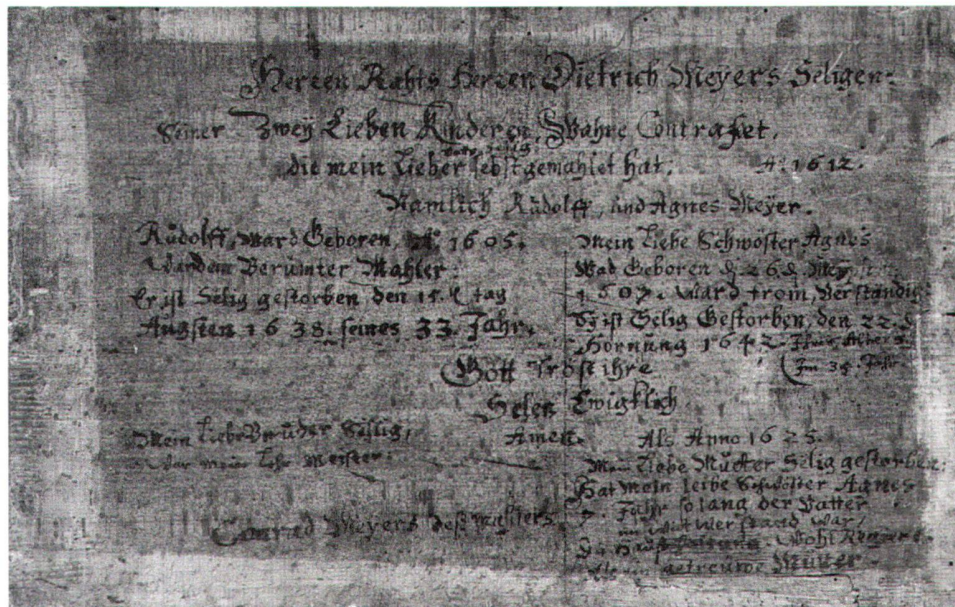 Herren Rahts Herren Dietrich Meyers Seligen
Seiner Zwey Lieben Kinderen, Wahre Contrafet,
Vatter Selig
die mein Lieber selbst gemahlet hat. Aº 1612.
Namlich Rudolff, und Agnes Meyer.
Rudolff, Ward Geboren, Aº 1605.
Berümter Mahler
Er ist Selig gestorben, den 15. tag
Augsten 1638. seines 33. Jahr.
Mein Liebe Schwöster Agnes
Geboren 26
1607. Ward from, Verständig
Sy ist Selig Gestorben, den 22.
Hornung 1642. Ihres Alters
Im 35. Jahr.
Gott Tröst ihre
Selen Ewigklich
Amen.
Mein Liebe Bruder Sehlig,
war mein Lehr Meister.
Conrad Meyers deß mallers
Als Anno 1625.
Mein Liebe Mutter Selig gestorben:
Hat mein leibe Schwöster Agnes
7. Jahr so lang der Vatter
im Wit wer stand war,
Wohl Regiert.
Als ein getreuwe Mutter